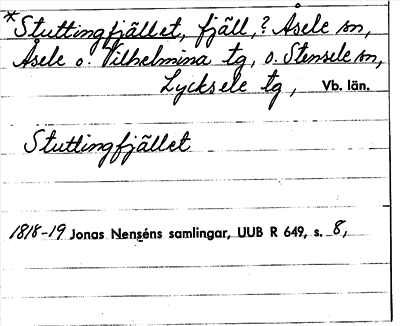 *Stuttingfjället, fjäll,? Åsele sn,
Åsele o. Vilhelmina tg, o. Stensele sn,
Lycksele tg, Vb. län.
Stuttingfjället
1818-19 Jonas Nenséns samlingar, UUB R 649, s. 8,